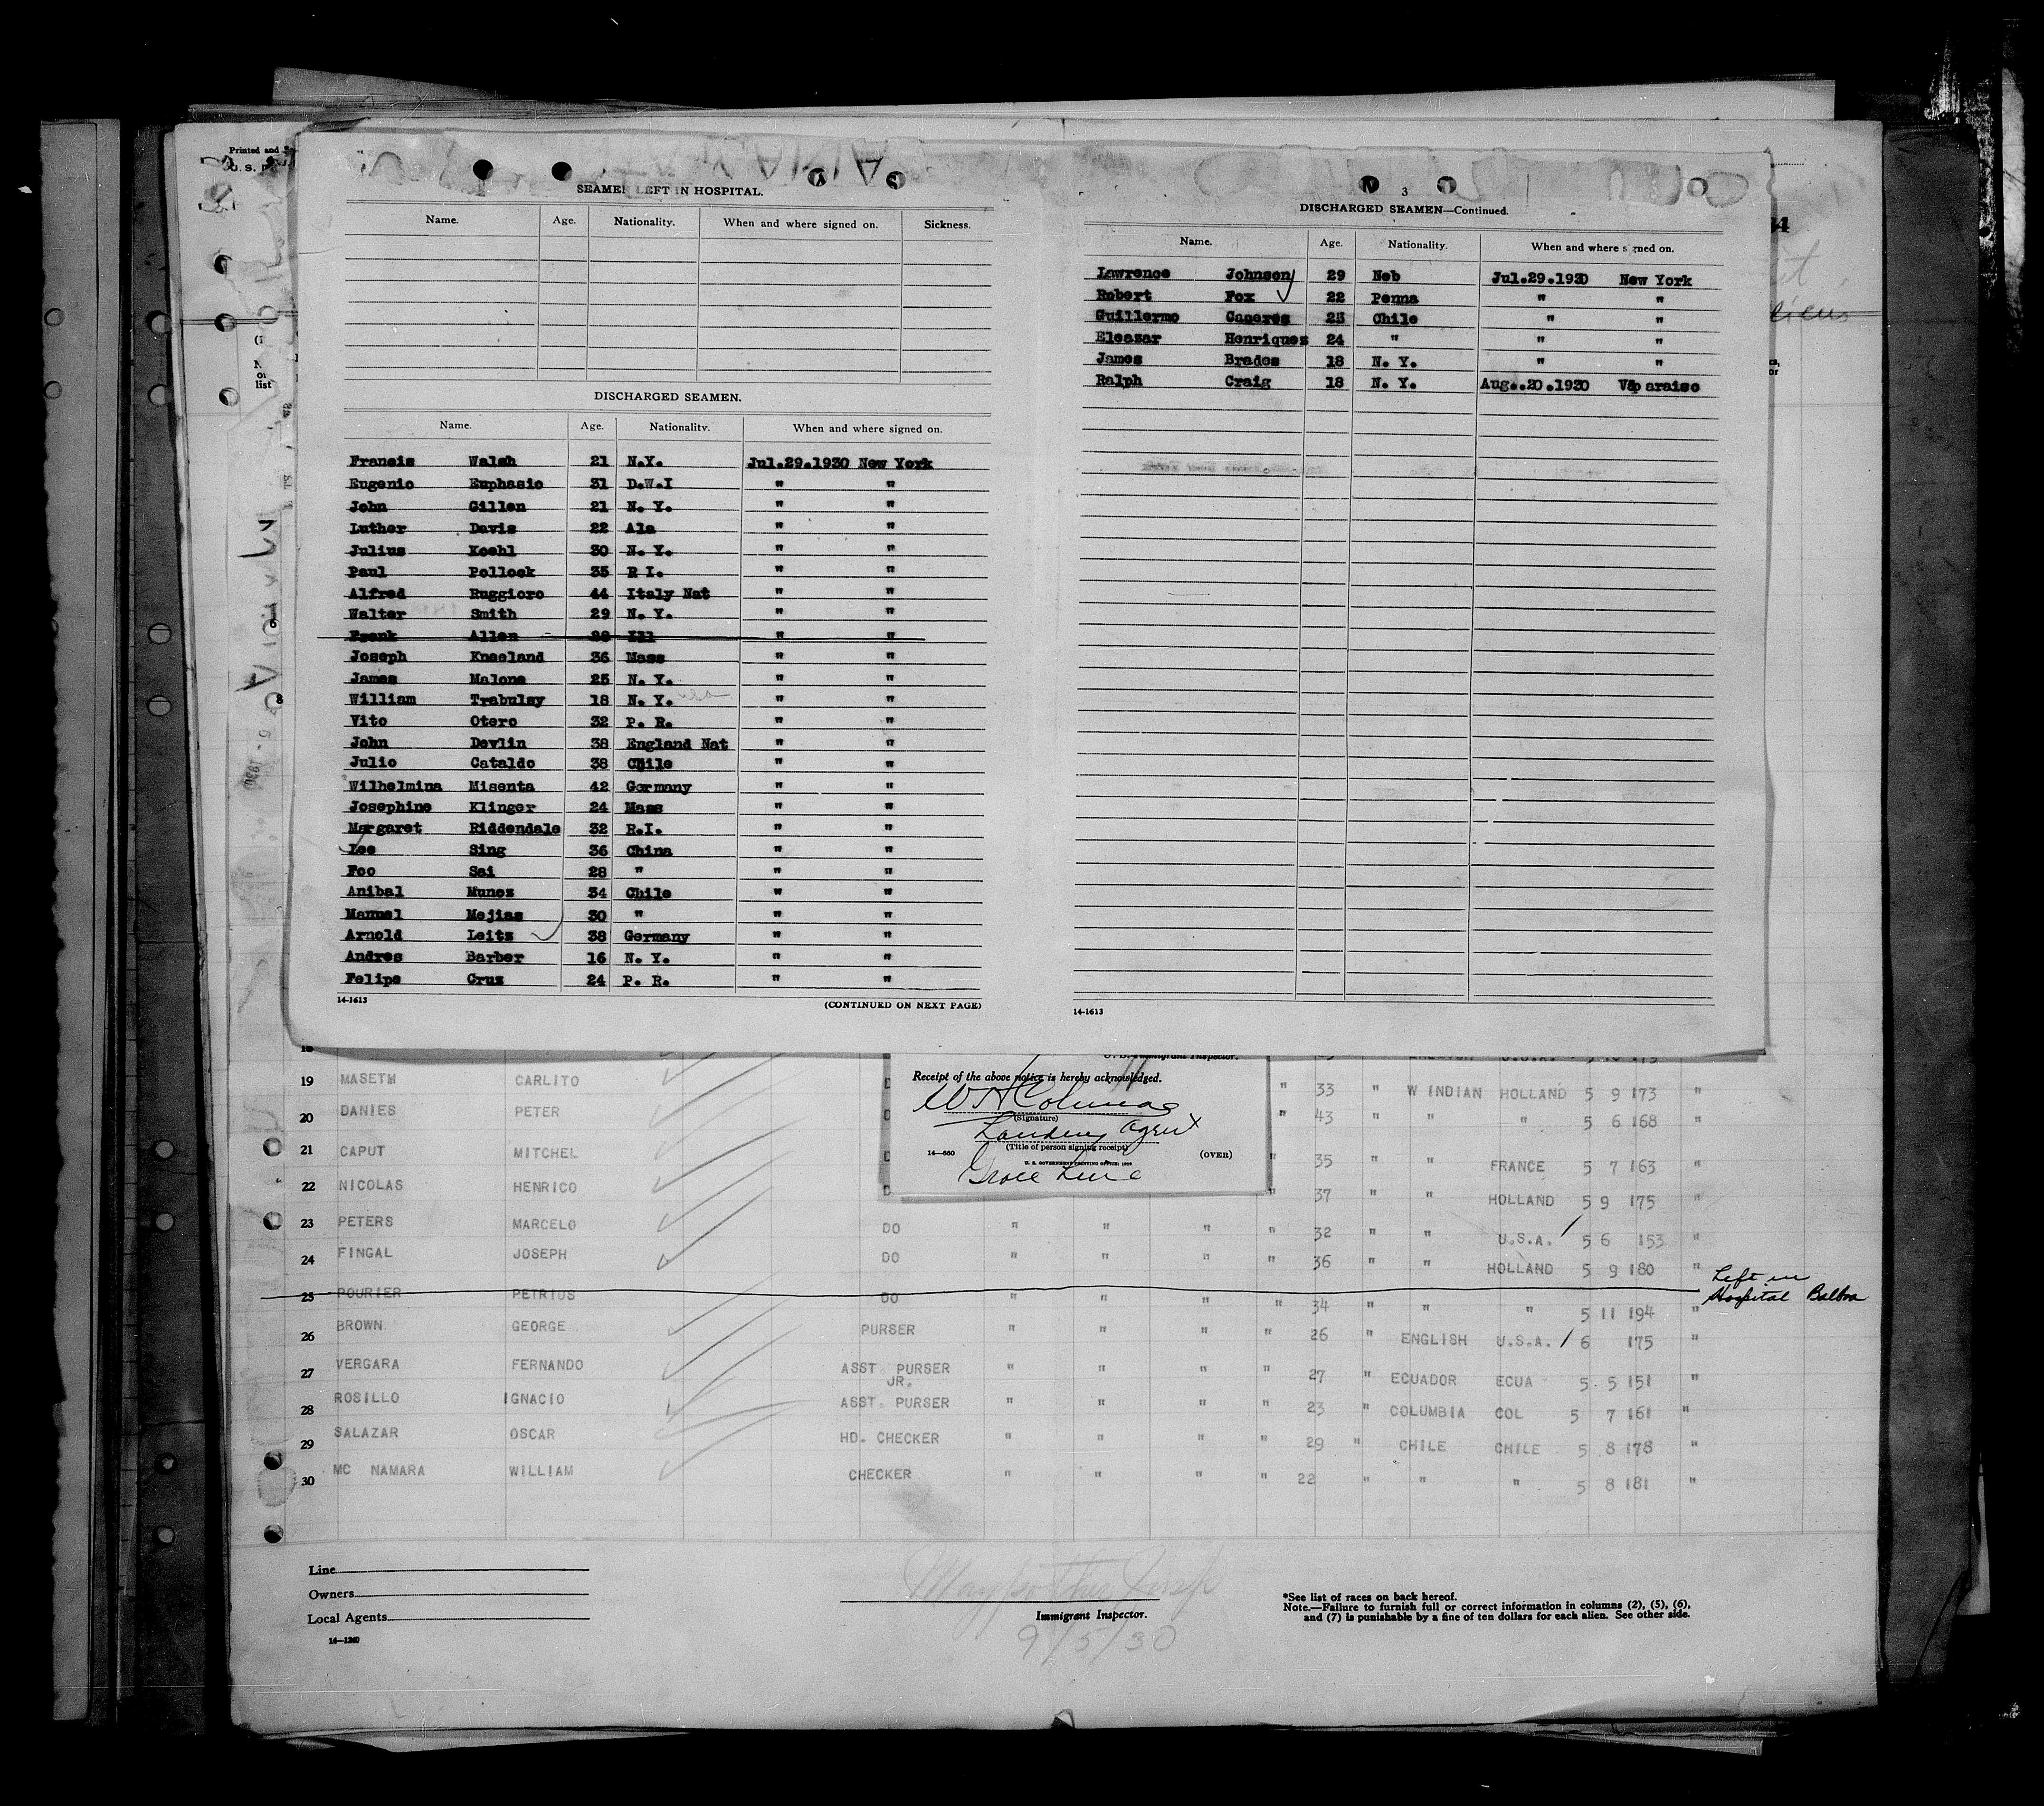 Printed and
U. S.
SEAMEN LEFT IN HOSPITAL.
Name. Age. Nationality. When and where signed on. Sickness.
DISCHARGED SEAMEN.
Name. Age. Nationality. When and where signed on.
Francis Walsh 21 N.Y. Jul.29.1930 New York
Eugenio Euphasio 31 D.W.I " "
John Gillen 21 N. Y. " "
Luther Davis 22 Ala " "
Julius Koehl 30 N. Y. " "
Paul Pollock 35 R I. " "
Alfred Ruggioro 44 Italy Nat " "
Walter Smith 29 N. Y. " "
Frank Allen 28 Ill " "
Joseph Kneeland 36 Mass " "
James Malone 25 N. Y. " "
William Trabulsy 18 N. Y. " "
Vito Otero 32 P. R. " "
John Devlin 38 England Nat " "
Julio Cataldo 38 Chile " "
Wilhelmina Misenta 42 Germany " "
Josephine Klinger 24 Mass " "
Margaret Riddendale 32 R.I. " "
Lee Sing 36 China " "
Foo Sai 28 " " "
Anibal Munoz 34 Chile " "
Manuel Mejias 30 " " "
Arnold Leitz 38 Germany " "
Andres Barber 16 N. Y. " "
Felipe Cruz 24 P. R. " "
14-1613 (CONTINUED ON NEXT PAGE)
3
DISCHARGED SEAMEN—Continued.
Name. Age. Nationality. When and where signed on.
Lawrence Johnson 29 Neb Jul.29.1930 New York
Robert Fox 22 Penna " "
Guillermo Caseres 25 Chile " "
Eleazar Henriques 24 " " "
James Brados 18 N. Y. " "
Ralph Craig 18 N. Y. Aug..20.1930 Valparaiso
14-1613
U. S. Immigrant Inspector.
Receipt of the above notice is hereby acknowledged.
(Signature)
Landing Agent
(Title of person signing receipt)
14—660 (OVER)
U. S. GOVERNMENT PRINTING OFFICE: 1930
Grace Line
18
19 MASETH CARLITO " 33 " W INDIAN HOLLAND 5 9 173 "
20 DANIES PETER " 43 " " " 5 6 168 "
21 CAPUT MITCHEL " 35 " " FRANCE 5 7 163 "
22 NICOLAS HENRICO " 37 " " HOLLAND 5 9 175 "
23 PETERS MARCELO DO " " " " 32 " " U.S.A. 5 6 153 "
24 FINGAL JOSEPH DO " " " " 36 " " HOLLAND 5 9 180 "
25 POURIER PETRIUS DO " " " " 34 " " " 5 11 194 " Left in Hospital Balboa
26 BROWN GEORGE PURSER " " " " 26 " ENGLISH U.S.A. 6 175 "
27 VERGARA FERNANDO ASST PURSER JR. " " " " 27 " ECUADOR ECUA 5 5 151 "
28 ROSILLO IGNACIO ASST. PURSER " " " " 23 " COLUMBIA COL 5 7 161 "
29 SALAZAR OSCAR HD. CHECKER " " " " 29 " CHILE CHILE 5 8 178 "
30 MC NAMARA WILLIAM CHECKER " " " " 22 " " " 5 8 181 "
Line
Owners
Local Agents
14—1240
Immigrant Inspector.
9/5/30
*See list of races on back hereof.
Note.—Failure to furnish full or correct information in columns (2), (5), (6),
and (7) is punishable by a fine of ten dollars for each alien. See other side.